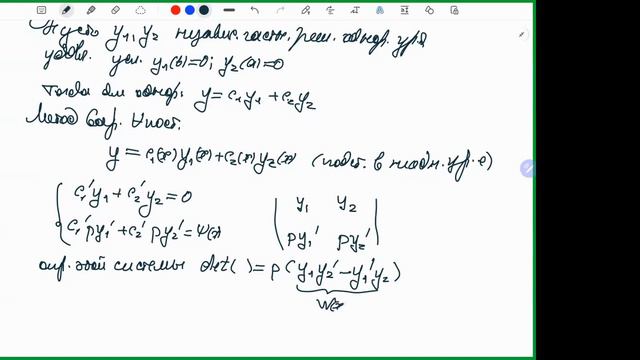 Пусть y₁, y₂ независ. частн. реш. однор. ур-я
удовл. усл. y₁(b)=0; y₂(a)=0
Тогда для однор. y=c₁y₁+c₂y₂
Метод вар. пост.
y=c₁(x)y₁(x)+c₂(x)y₂(x) (подст. в неодн. ур-е)
{ c₁'y₁+c₂'y₂=0
c₁'py₁'+c₂'py₂'=
| y₁ y₂ |
| py₁' py₂' |
опр. этой системы det( )=p(y₁y₂'−y₁'y₂)